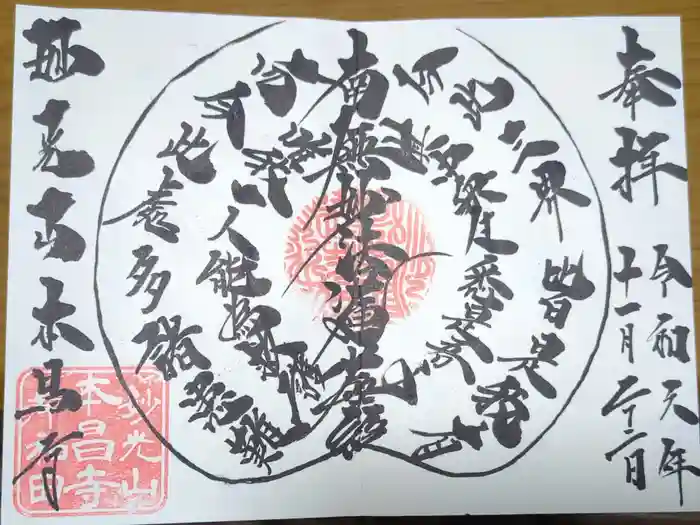 奉拝
令和元年
十一月二十二日
南無妙法蓮華経
今此三界
皆是我有
其中衆生
悉是吾子
而今此処
多諸患難
唯我一人
能為救護
妙光山本昌寺
妙光山
本昌寺